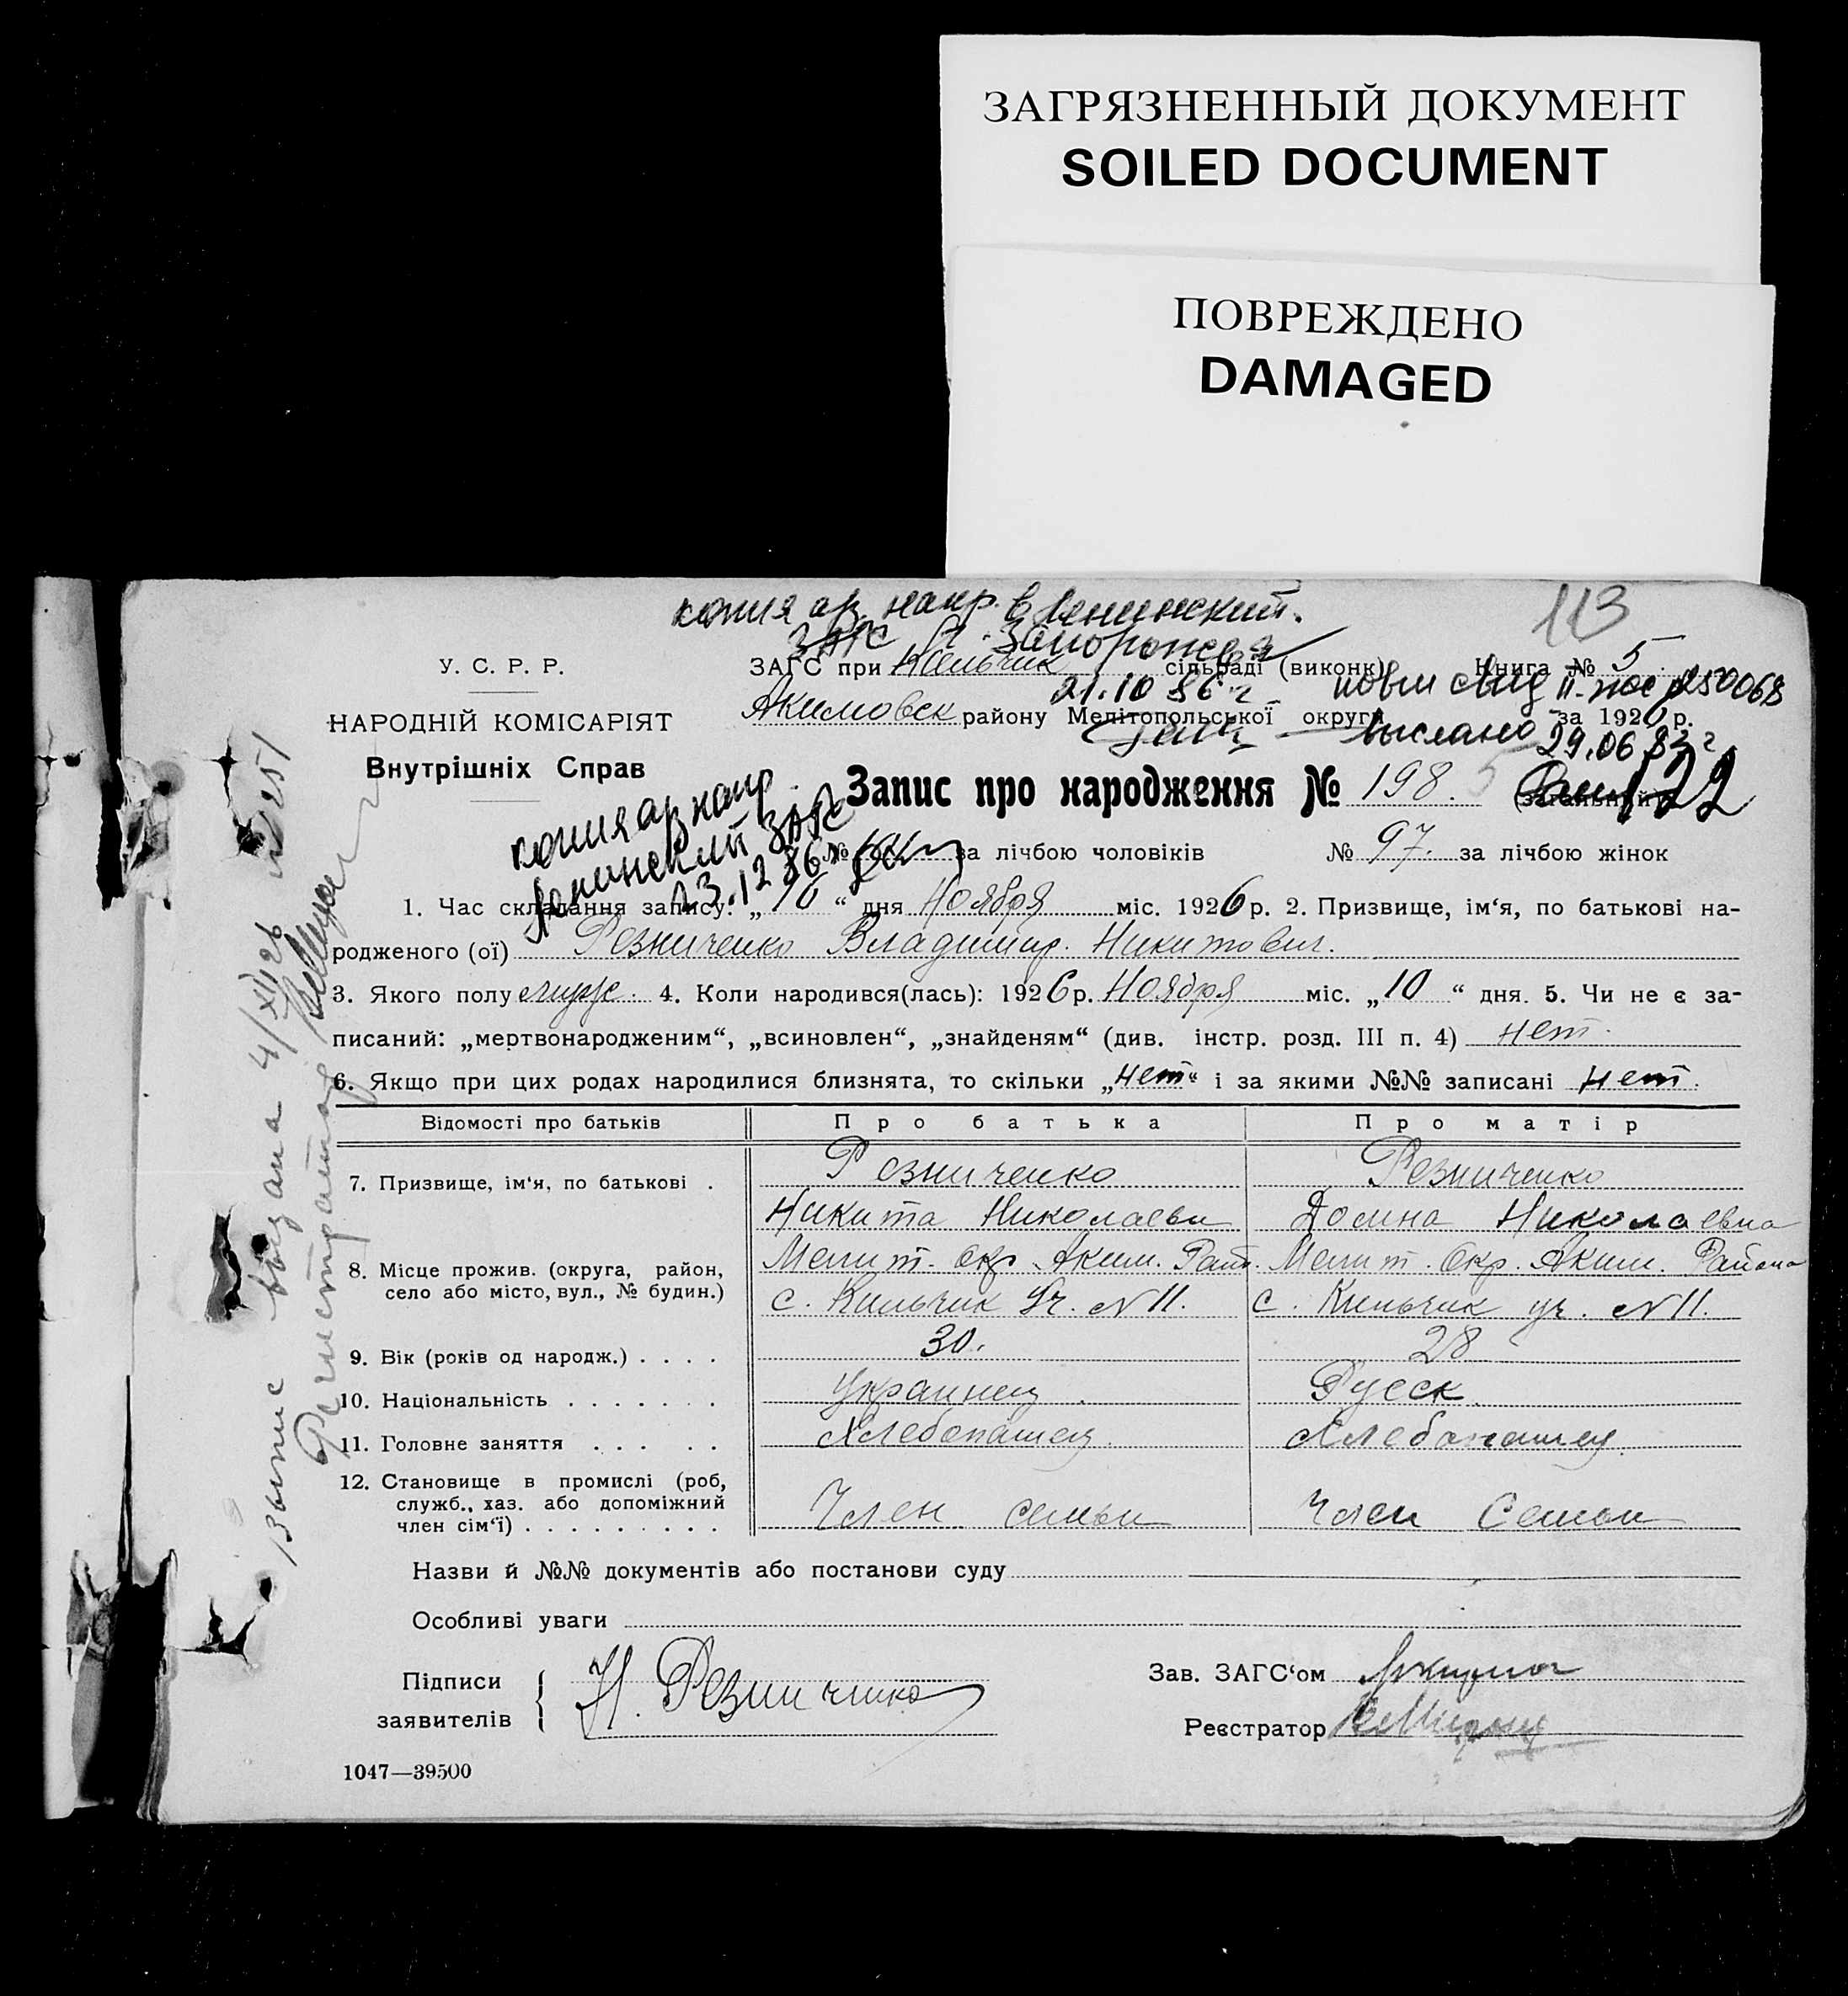 ЗАГРЯЗНЕННЫЙ ДОКУМЕНТ
SOILED DOCUMENT
ПОВРЕЖДЕНО
DAMAGED
копия аз. напр. в Ленинский
ЗАГС г. Запорожья
21.10 86 г
113
У. С. Р. Р.
НАРОДНІЙ КОМІСАРІЯТ
Внутрішніх Справ
ЗАГС при Кильчик сільраді (виконк) Книга № 5
Акимовск району Мелітопольської округи за 1926 р.
повт свид II-жс № 250068
выслано 29.06 83 г
копия аз напр
Ленинский ЗАГС
23.12 86
Запис про народження № 198. (загальний)
№ за лічбою чоловіків № 97. за лічбою жінок
1. Час складання запису: „ 10 “ дня Ноября міс. 1926 р. 2. Призвище, ім‘я, по батькові на-
родженого (ої) Резниченко Владимир. Никитович.
3. Якого полу муж. 4. Коли народився(лась): 1926 р. Ноября міс. „ 10 “ дня. 5. Чи не є за-
писаний: „мертвонародженим“, „всиновлен“, „знайденям“ (див. інстр. розд. III п. 4) нет.
6. Якщо при цих родах народилися близнята, то скільки „нет“ і за якими №№ записані нет.
Відомості про батьків Про батька Про матір
7. Призвище, ім‘я, по батькові . Резниченко Резниченко
Никита Николаеви Домна Николаевна
8. Місце прожив. (округа, район, Мелит. Окр. Аким. Райо. Мелит. Окр. Аким. Района
село або місто, вул., № будин.) с. Кильчик Уч. № 11. с. Кильчик уч. № 11.
9. Вік (років од народж.) . . . . 30. 28
10. Національність . . . . . . . Украинец. Русск.
11. Головне заняття . . . . . Хлебопашец. Хлебопашец.
12. Становище в промислі (роб,
служб., хаз. або допоміжний
член сім‘ї) . . . . . . . . . Член семьи Член Семьи
Назви й №№ документів або постанови суду
Особливі уваги
Підписи
заявителів
Н. Резниченко
Зав. ЗАГС‘ом
Реєстратор
1047—39500
выпис выдана 4/XII 26 № 251
Регистратор